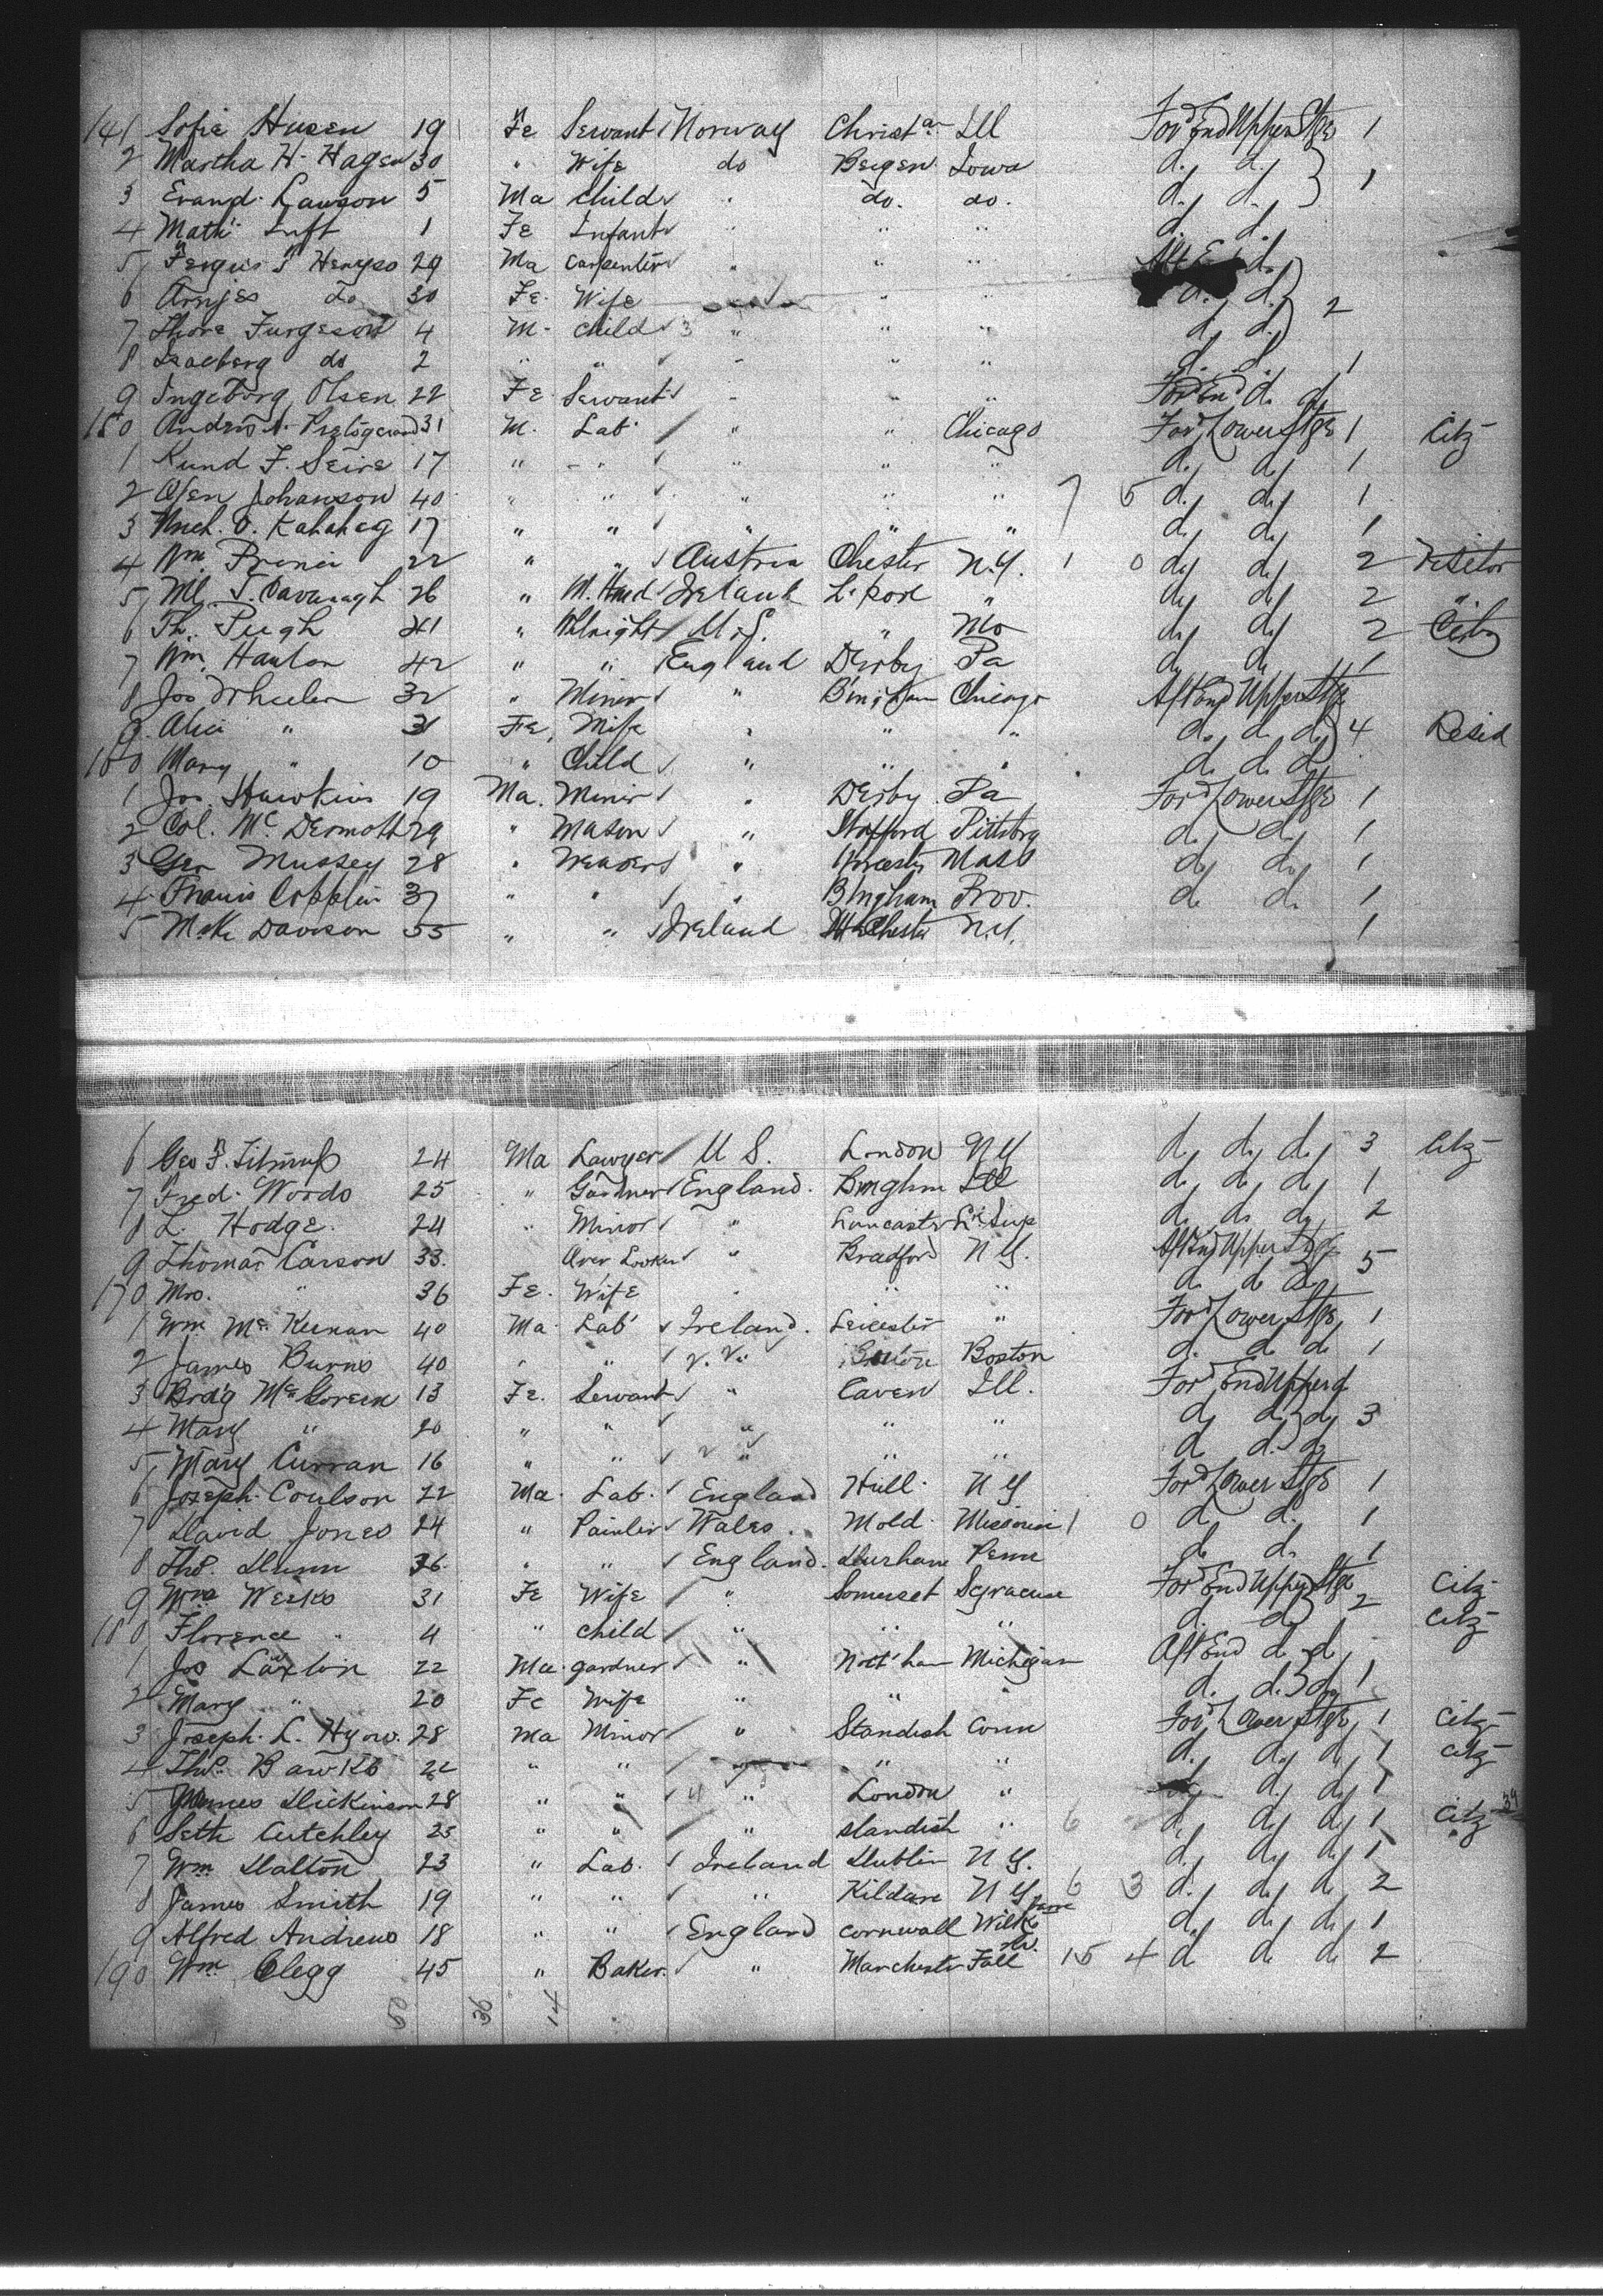 141 Sofie Husen 19 Fe Servant Norway Christ^a Ill For^d End Upper Stge 1
2 Martha H. Hagen 30 " Wife do Bergen Iowa d. d.
3 Evand. Lawson 5 Ma child " do. do. d. d. 1
4 Math Luft 1 Fe Infant " " " d. d.
5 Fergus Henyso 29 Ma Carpenter " " " d.
6 Arnjes do 30 Fe. Wife " " d. d. 2
7 Thore Furgeson 4 M. child 3 " " " d. d.
8 do 2 " " " " d. d. 1
9 Ingeborg Olsen 22 Fe Servant " " " For End d. d.
150 Anders 31 M. Lab " " Chicago For^d Lower Stge 1 Citz
1 Kund F. Seire 17 " " " " " d. d. 1
2 Olsen Johanson 40 " " " " " 7 5 d. d. 1
3 17 " " " " " d. d. 1
4 Wm. 22 " " Austria Chester N.Y. 1 0 d. d. 2 Visitor
5 Ml. J. Cavanagh 26 " Ireland L'pool " d. d. 2 "
6 Th. Pugh 41 " U.S. " Mo d. d. 2 Citz
7 Wm. Hanlon 42 " " England Derby Pa d. d. 1
8 Jos Wheeler 32 " Miner " B'mgham Chicago Aft End Upper Stge
9 Alice " 31 Fe. Wife " " " d. d. d. 4 Resid
160 Mary " 10 " Child " " " d. d. d.
1 Jos. Hawkins 19 Ma. Miner " Derby Pa For^d Lower Stge 1
2 Col. McDermott 29 " Mason " Stafford Pittsbrg d. d. 1
3 Geo Mussey 28 " Weaver " Worcester Mass d. d. 1
4 Francis Copplin 37 " " " B'ingham Prov. d. d. 1
5 Davison 55 " " Ireland N.Y. 1
6 Geo F. 24 Ma Lawyer U S. London N Y d. d. d. 3 Citz
7 Fred. Woods 25 " Gardner England. Bmghm Ill d. d. d. 1
8 L. Hodge. 24 " Minor " Lancaster Lk Sup d. d. d. 2
9 Thomas Carson 33. Over Looker " Bradford N Y. Aft End Upper Stge 5
170 Mrs. " 36 Fe. Wife " " " d. d. d.
1 Wm McKeenan 40 Ma Lab Ireland. Leicester " For^d Lower Stge 1
2 James Burns 40 " " " Boston d. d. d. 1
3 Bridg McGoreen 13 Fe. Servant " Caven Ill. For^d End Upper d
4 Mary " 20 " " " " " d. d. d. 3
5 Mary Curran 16 " " " " " d. d. d.
6 Joseph Coulson 22 Ma. Lab. England Hull N Y For^d Lower Stge 1
7 David Jones 24 " Painter Wales. Mold Missouri 1 0 d. d. 1
8 Thos. Dunn 36. " " England. Durham Penn d. d. 1
9 Mrs Weeks 31 Fe Wife " Somerset Syracuse For^d End Upper Stge 2 Citz
180 Florence " 4 " child " " " d. d. Citz
1 Jos Laxton 22 Ma gardner " Nott'ham Michigan Aft End d. d.
2 Mary " 20 Fe Wife " " " d. d. d. 1
3 Joseph. L. 28 Ma Minor " Standish Conn For^d Lower Stge 1 Citz
4 Thos. Bawkb 22 " " " " d. d. d. 1 Citz
5 James Dickinson 28 " " 4 " London " d. d. 1
6 Seth Cutchley 25 " " " standish " 6 d. d. d. 1 Citz 34
7 Wm Dalton 23 " Lab. Ireland Dublin N Y. d. d. d. 1
8 James Smith 19 " " " Kildare N Y 6 3 d. d. d. 2
9 Alfred Andrews 18 " " England cornwall Wilk barre d. d. d. 1
190 Wm Clegg 45 " Baker. " Manchester Fall Riv. 15 4 d d. d. 2
8 36 14